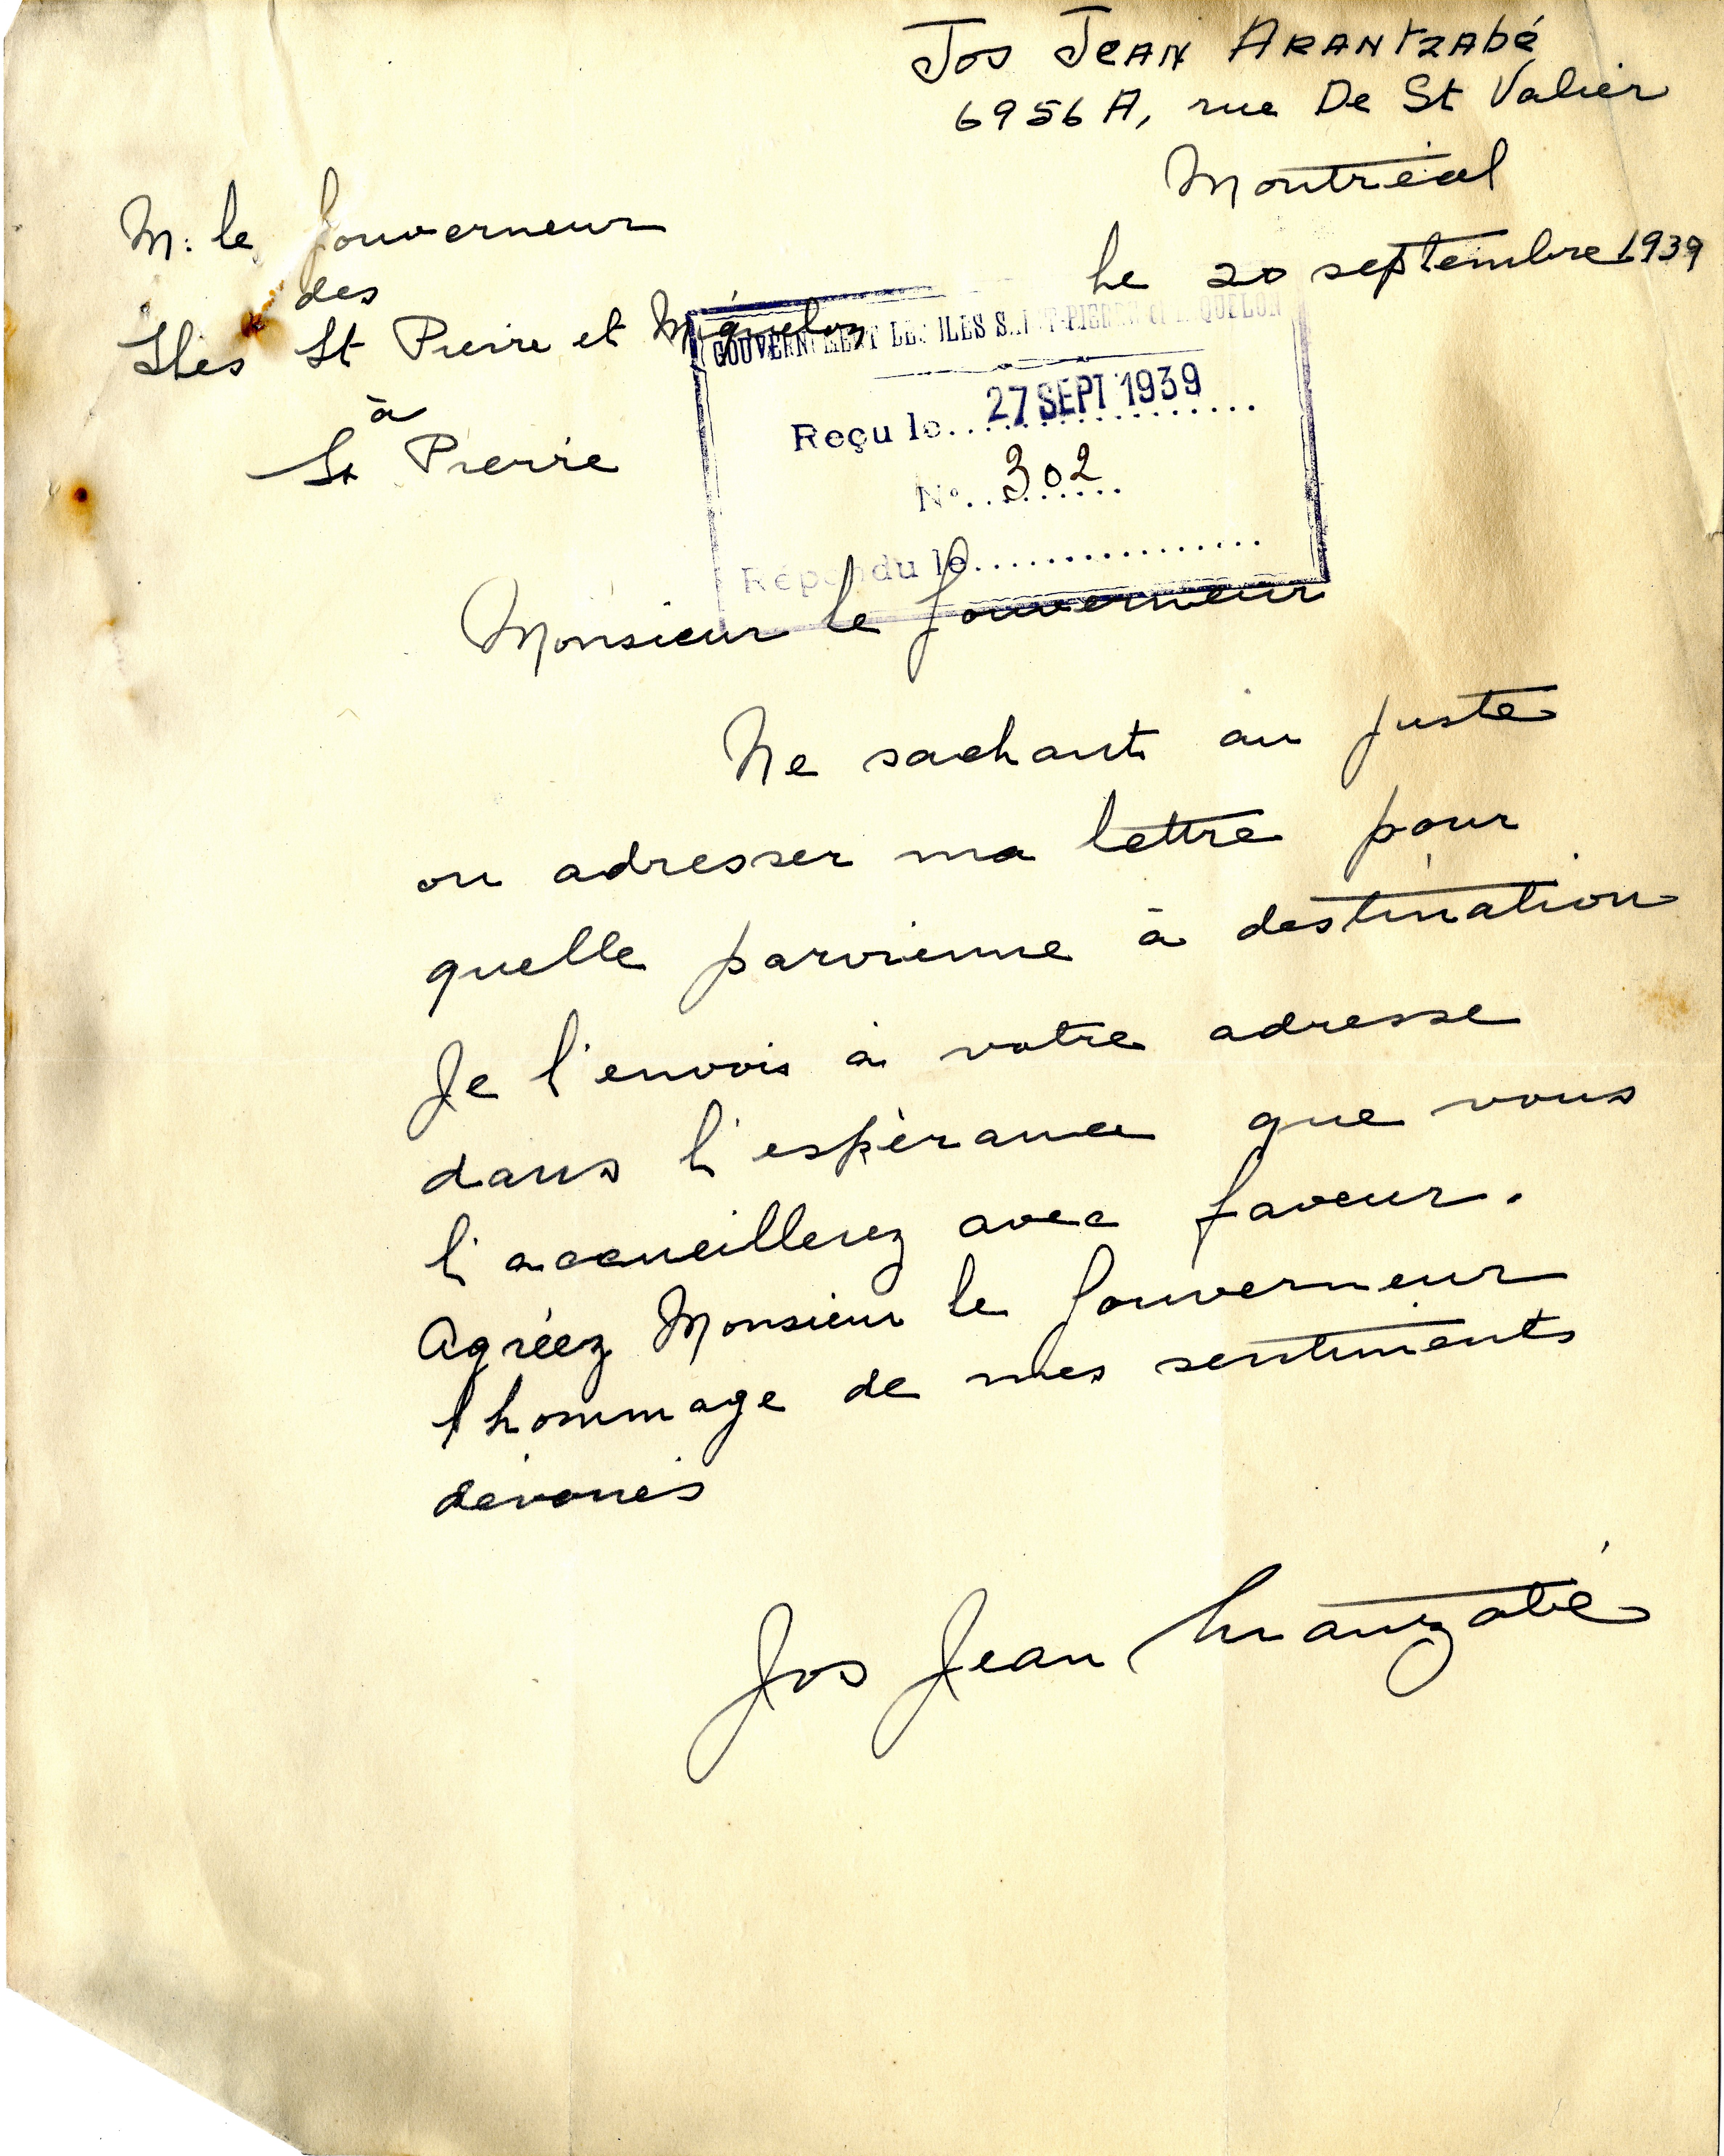 Jos Jean Arantzabé
6956 A, rue De St Valier
Montréal
le 20 septembre 1939
M. le Gouverneur
des
Iles St Pierre et Miquelon
à
St Pierre
GOUVERNEMENT DES ILES SAINT-PIERRE et MIQUELON
Reçu le 27 SEPT 1939
N° 302
Répondu le
Monsieur le Gouverneur
Ne sachant au juste
ou adresser ma lettre pour
quelle parvienne à destination
Je l'envois à votre adresse
dans l'espérance que vous
l'accueillerez avec faveur.
Agréez Monsieur le Gouverneur
l'hommage de mes sentiments
dévoués
Jos Jean Arantzabé